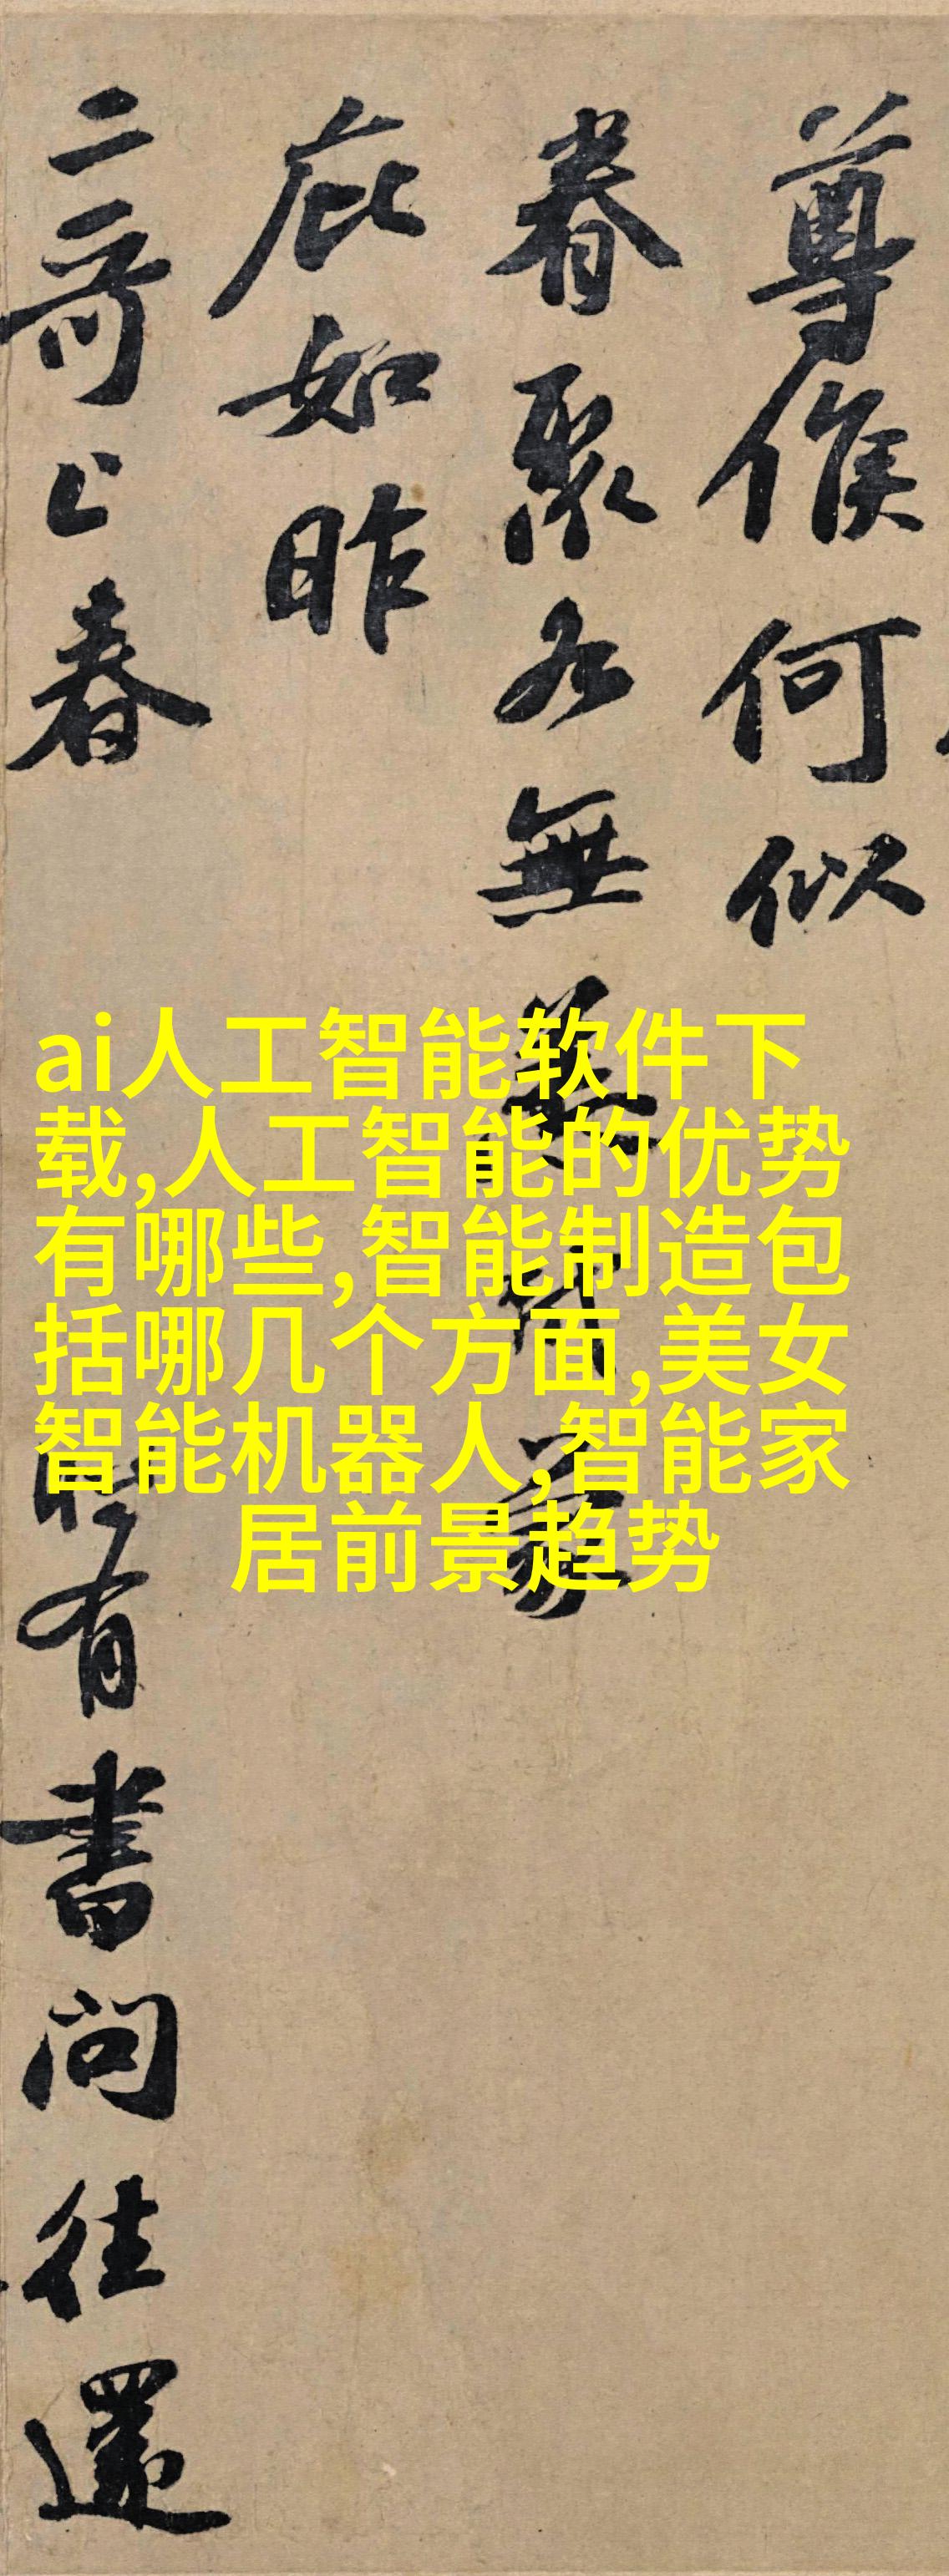 尊候何似
眷聚各無恙可
庇如昨
二哥上春
時有書問往還
ai人工智能软件下
载,人工智能的优势
有哪些,智能制造包
括哪几个方面,美女
智能机器人,智能家
居前景趋势